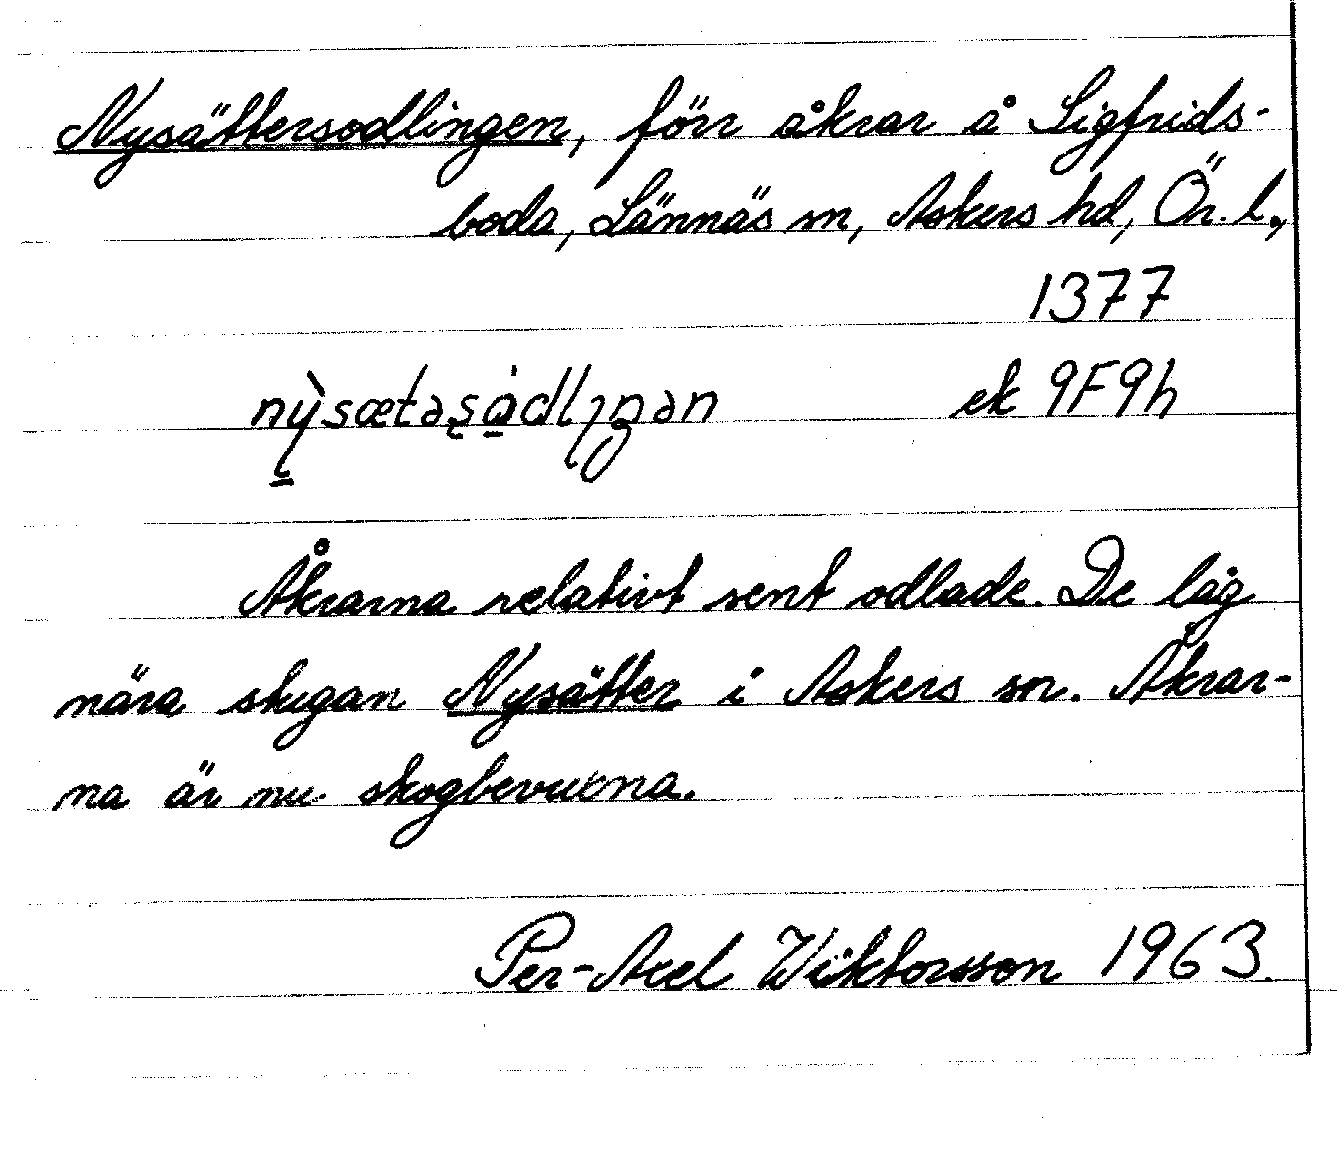 Nysättersodlingen, förr åkrar å Sigfrids-
boda, Lännäs sn, Askers hd, Ör. l.,
1377
nỳsætəsådlıŋən ek 9F9h
Åkrarna relativt sent odlade. De låg
nära stugan Nysätter i Askers sn. Åkrar-
na är nu skogbevuxna.
Per-Axel Wiktorsson 1963.